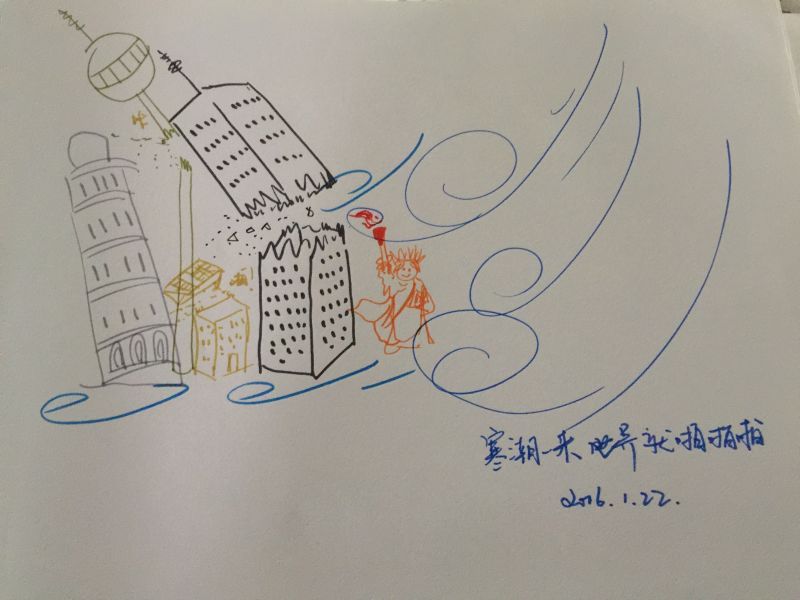 寒潮一来 世界就啪啪啪
2016.1.22.